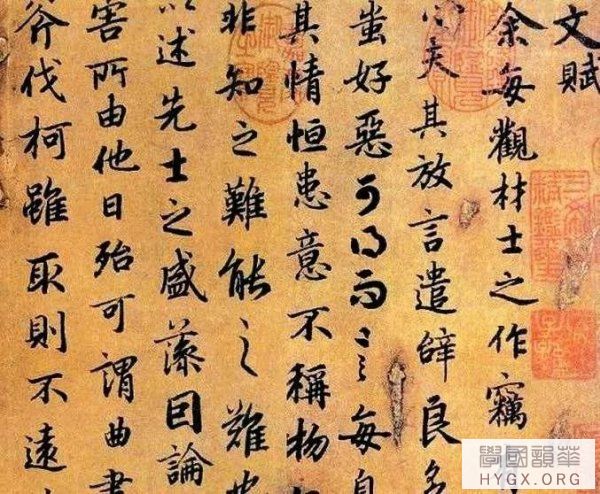 文賦
余每觀材士之作竊
心夫其放言遣辭良多
蚩好惡可得而言每自
其情恒患意不稱物
非知之難能之難也
以述先士之盛藻因論
害所由他日殆可謂曲盡
斧伐柯雖取則不遠
三希堂精鑑璽
宜子孫
華韻國學
HYGX.ORG